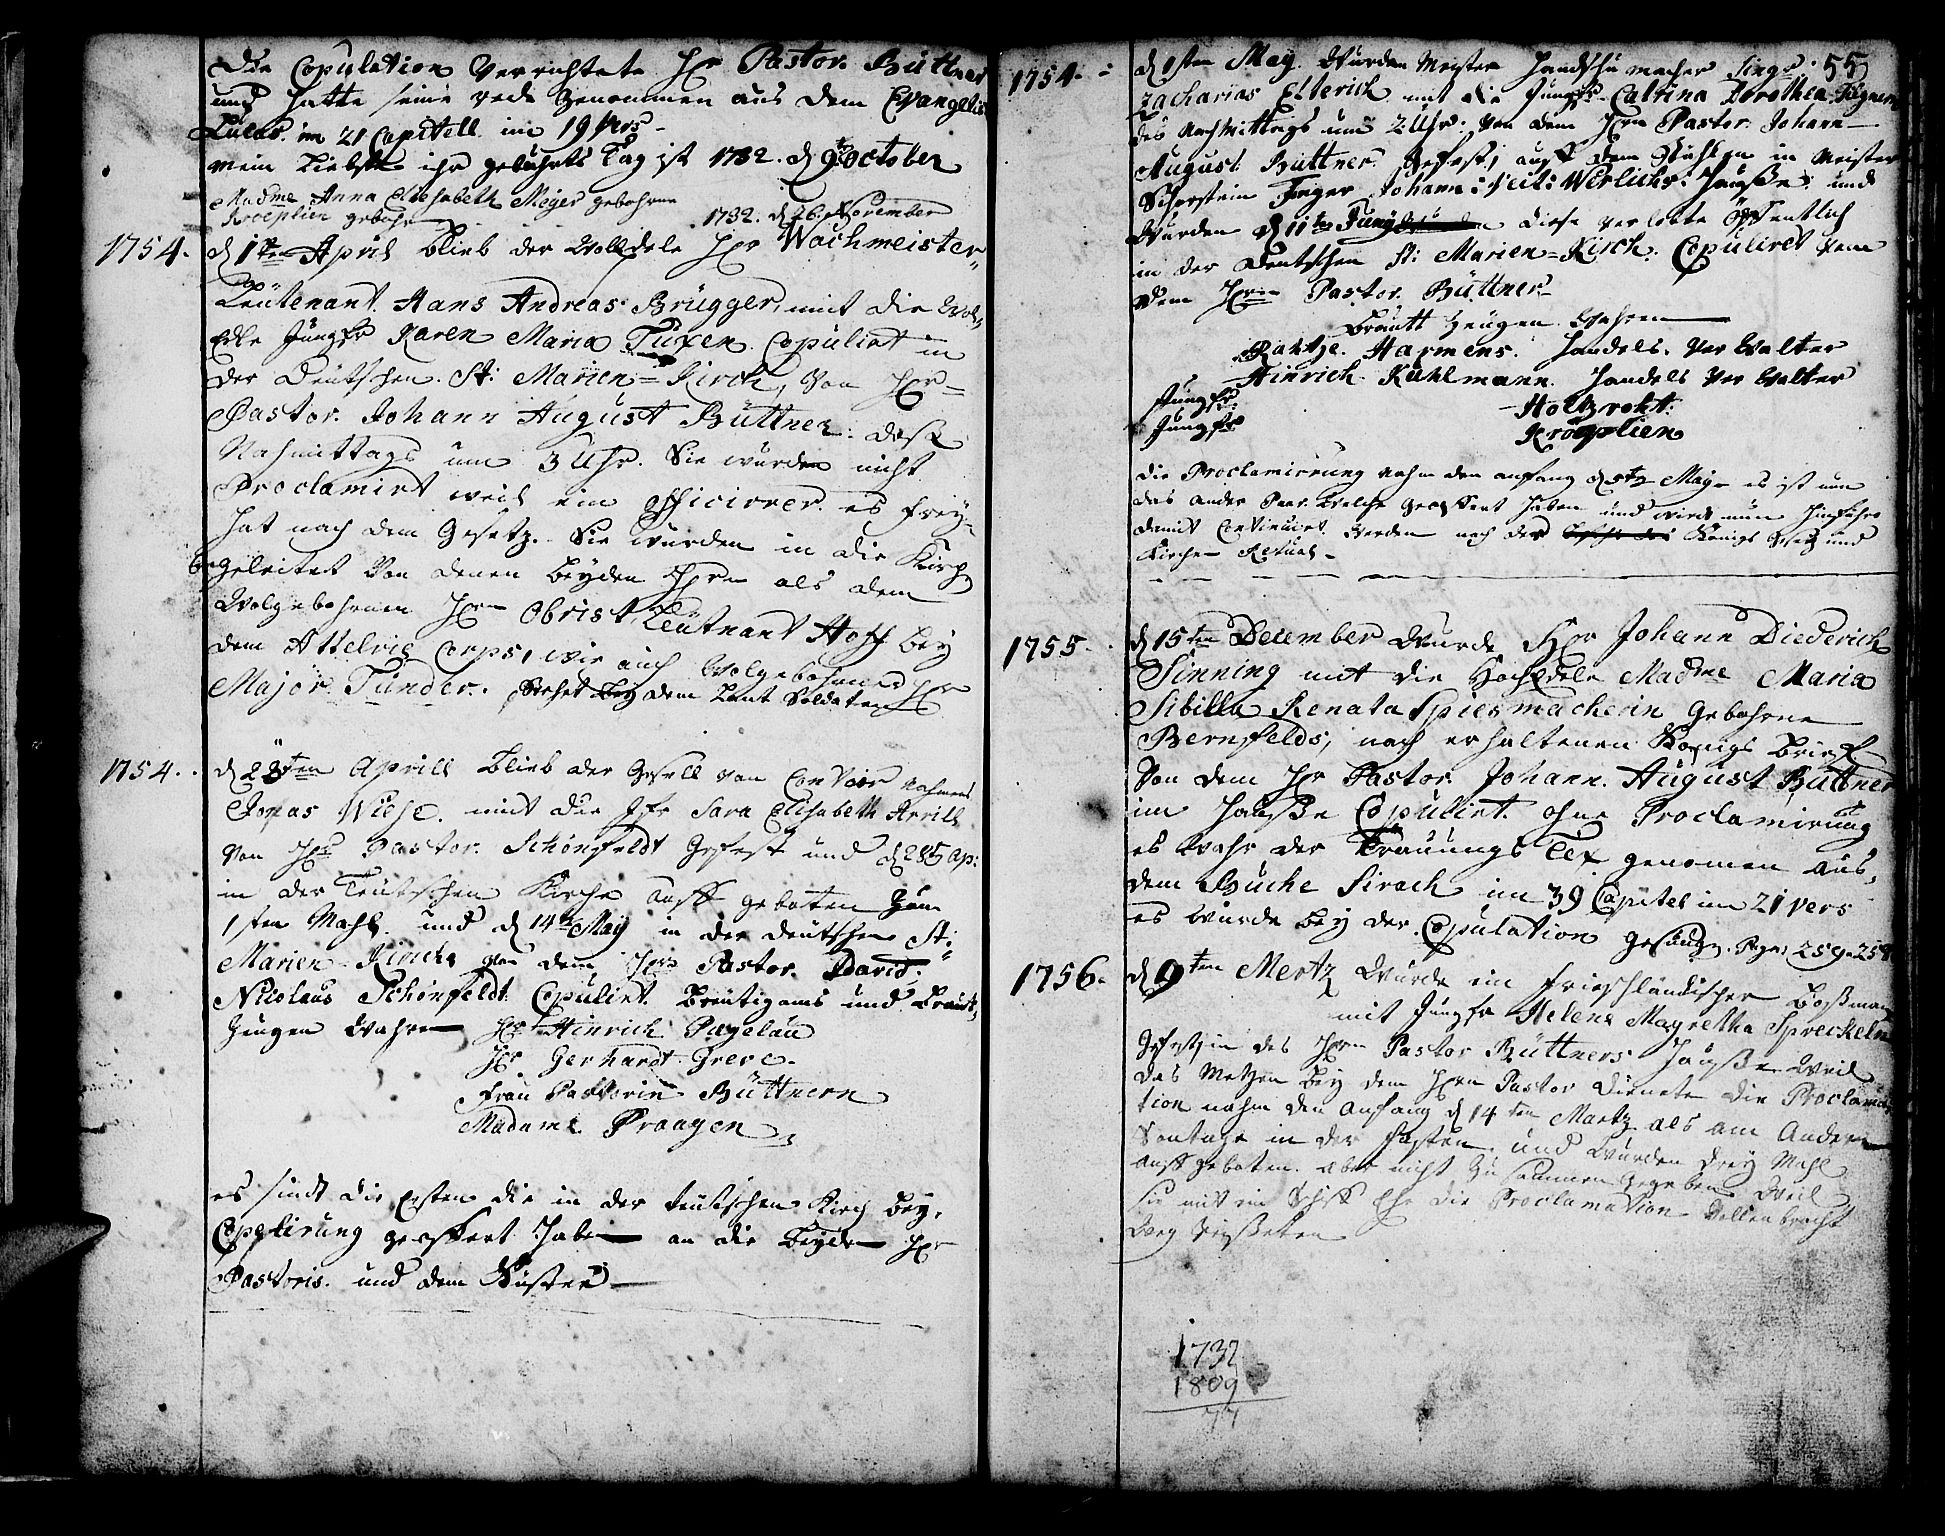 Die Copulation Verrichtete Hr Pastor Büttner
und hatte seine rede genommen aus dem Evangelist
Lucas im 21 Capitell im 19 Vers
mein Liebste ihr gebuhrts Tag ist 1732. d 9t October
Madme Anna Elisabeth Meyer gebohrne
Kroeplien gebohr 1732. d 26. November
1754. d 1ten April blieb der WollEdele Hr Wachmeister
Leutenant Hans Andreas Brügger, mit die Wol
Edle Jungfr Karen Maria Tuxen Copulirt in
der Deutschen St: Marien=Kirch, Von Hr
Pastor Johann August Büttner: deß
Nachmittags um 3 Uhr. Sie wurden nicht
Proclamirt weil ein Officirer es frey
hat nach dem Gesetz. Sie wurden in die Kirch
Begeleitet Von denen beyden Hrn als dem
Wolgebohrnen Hrn Obrist Leutnant Hoff bey
dem Attelrie Corps, wie auch Wolgebohrner Hr
Major Tunder. Stehet bey dem Lant Soldaten
1754. d 22ten Aprill blieb der Gesell von Contoir nahmens
Jonas Wiese. mit die Jfr Sara Elisabeth Arrill
Von Hr Pastor Schönfeldt Gefest und d 28t Ap:
in der Teutschen Kirche auff geboten zum
1sten Mahl und d 14t May in der deutschen St:
Marien Kirche von dem Hrn Pastor David
Nicolaus Schönfeldt Copulirt. Breutigams und Braut
Zeugen Wahren Hr Hinrich Pagelau
Hr Gerhardt Greve
Frau Pastorin Büttnern
Madame Praagen
es sindt die Ersten die in der teutschen Kirch bey
Copelirung geoffert haben an die beyden Hr
Pastoris und dem Küster
55
1754. d 1sten May Wurden Meister Handschumacher
Zacharias Etterich mit die Jungfr Catrina Dorothea
des nachmittags um 2 Uhr. Von dem Hrn Pastor Johann
August Büttner Gefest, auff dem in Meister
Schorstein Feger Johann: Veit: Werlichs: Hauße und
Wurden d 11ten Juny diese verlobte Offentlich
in der Deutschen St: Marien=Kirch. Copuliret Von
dem Hrn Pastor Büttner
Brautt Zeugen Wahren
Harmens. Handels Verwalter
Hinrich Kuhlmann Handels Verwalter
Jungfr Holtzroht
Jungfr Kroeplien
Die Proclamirung nahm den anfang d 5t May es ist nun
das ander Paar Welche Geoffert haben und wird nun hinführo
damit Continuirt Werden nach der Königs Gesetz und
Kirche Retual
1755. d 15ten December Wurde Hr Johann Diederich
Sinning mit die HochEdele Madme Maria
Sibilla Renata Spiesmacherin Gebohrne
Bernsfelds, nach erhaltenen Königs Brief
Von dem Hr Pastor Johann August Büttner
im Hauße Copulirt ohne Proclamirung
es Wahr der Trauungs Text genomen aus
dem Buche Sirach im 39 Capitel im 21 Vers
es wurde bey der Copulation gesungen Pag: 259.
1756. d 9ten Mertz Wurde ein Frießländischer Boßman
mit Jungfr Helena Magretha Spreckelsen
Gefest in des Hrn Pastor Büttners Hauße Weil
das Metzen bey dem Hrn Pastor Dienete die Proclama
tion nahm den anfang d 14ten Martz als am Andern
Sontage in der Fasten und Wurden drey Mahl
auff geboten. aber nicht zu sammen gegeben Weil
sie mit ein Schiff Ehe die Proclamation Vollenbracht
Weg
1732
1809
77